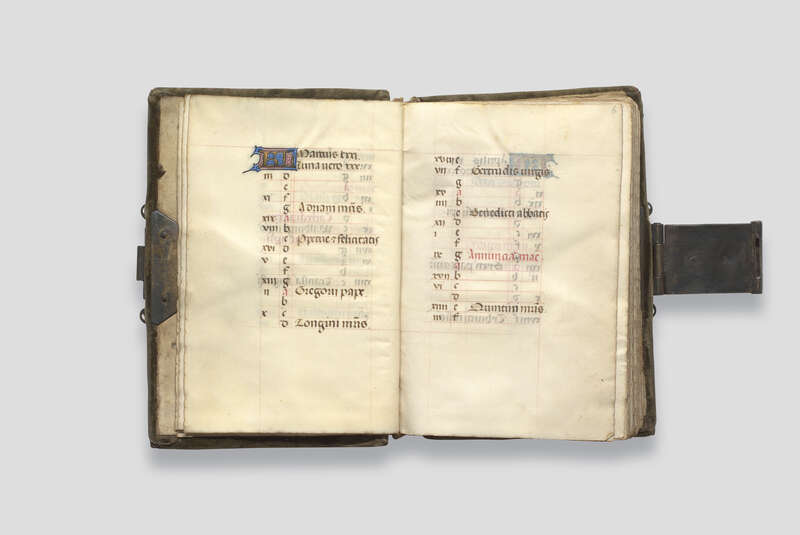 Martius xxxi.
Luna vero xxx.
iii d
e
xi f
g Adriani mris.
xix a
viii b
c Ppetue ⁊ felicitatis
xvi d
v e
f
xiii g
ii a Gregorii pape.
b
x c
d Longini mris.
6
xviii e
vii f Gertrudis virgis.
g
xv a
iiii b
c Benedicti abbatis
xii d
i e
f
ix g
a
xvii b
vi c
d
xiiii e Quirini mris
iii f